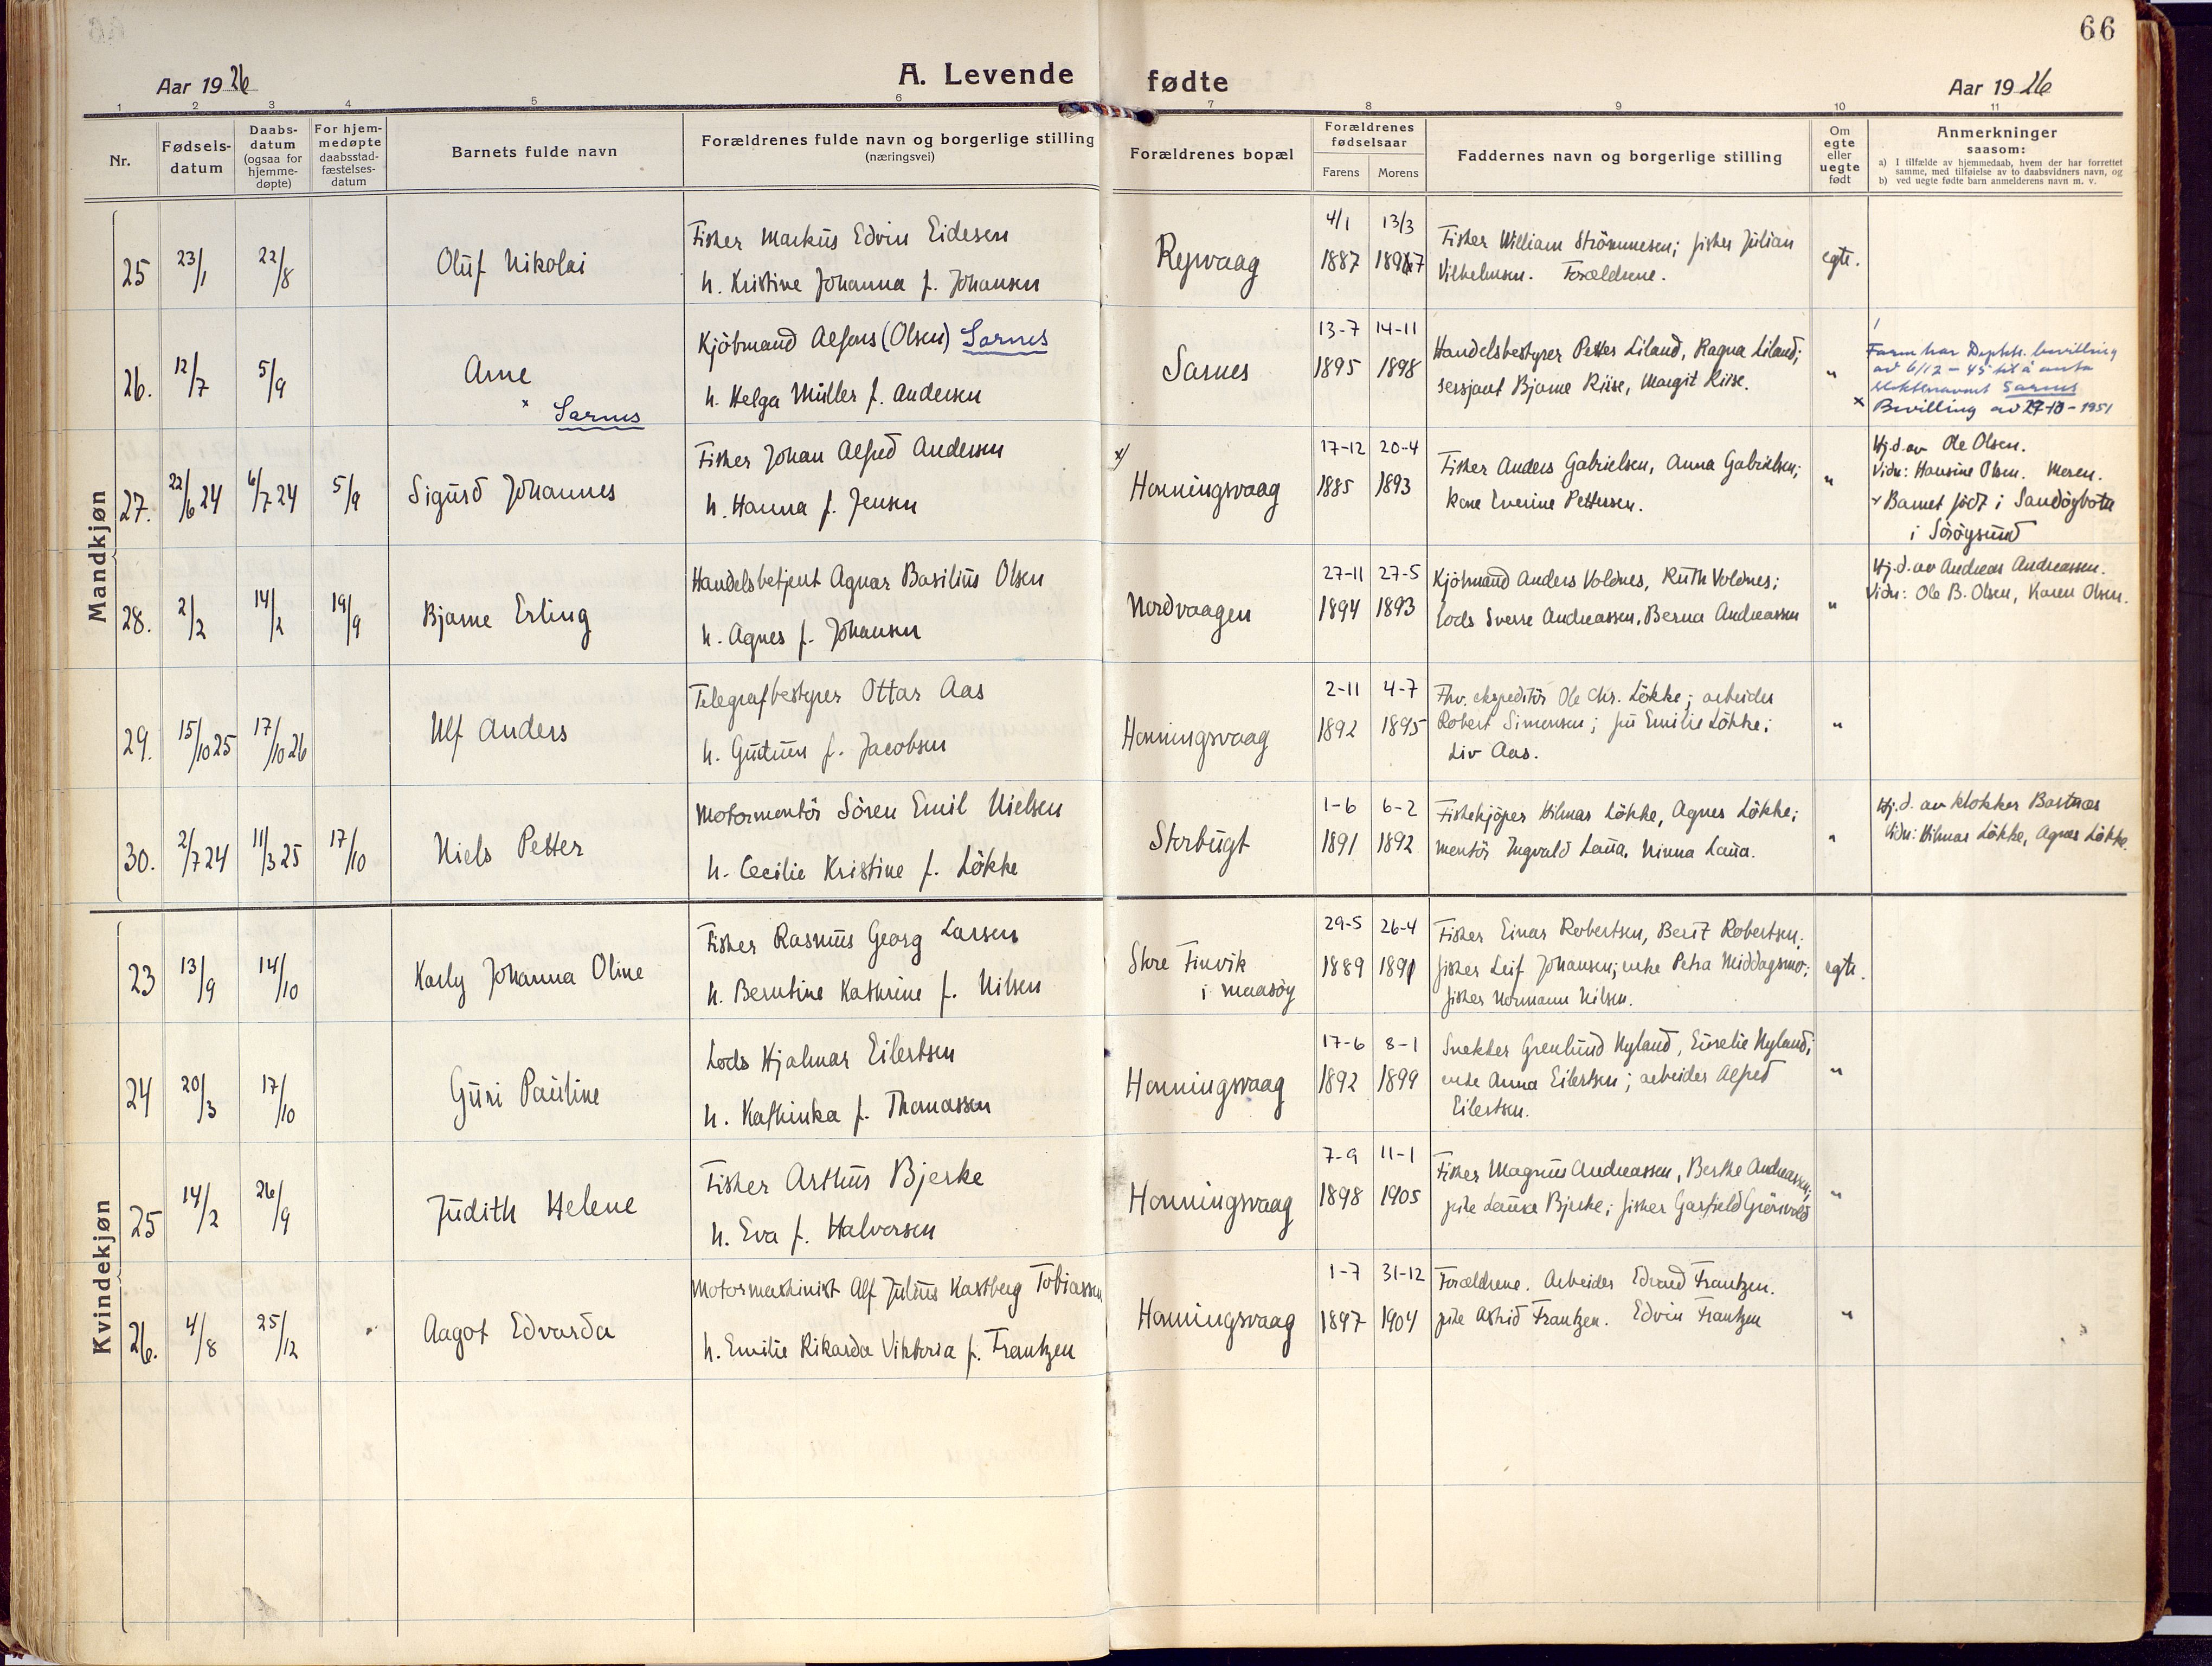 66
Aar 1926
A. Levende fødte
Aar 1926
1 2 3 4 5 6 7 8 9 10 11
Nr.
Fødsels-
datum
Daabs-
datum
(ogsaa for
hjemme-
døpte)
For hjem-
medøpte
daabsstad-
fæstelses-
datum
Barnets fulde navn
Forældrenes fulde navn og borgerlige stilling
(næringsvei)
Forældrenes bopæl
Forældrenes
fødselsaar
Farens Morens
Faddernes navn og borgerlige stilling
Om
egte
eller
uegte
født
Anmerkninger
saasom:
a) I tilfælde av hjemmedaab, hvem der har forrettet
samme, med tilføielse av to daabsvidners navn, og
b) ved uegte fødte barn anmelderens navn m. v.
Mandkjøn
25 23/1 22/8 Oluf Nikolai
Fisker Markus Edvin Eidesen
h. Kristine Johanna f. Johansen
Repvaag
4/1 13/3
1887 1897
Fisker William Strömmesen; fisker Julian
Vilhelmsen. Forældrene.
egte.
26. 12/7 5/9 Arne
x Sarnes
Kjöbmand Alfons (Olsen) Sarnes
h. Helga Müller f. Andersen
Sarnes
13-7 14-11
1895 1898
Handelsbestyrer Petter Liland, Ragna Liland;
sersjant Bjarne Riise, Margit Riise.
"
Faren har Deptts. bevilling
av 6/12-45 til å anta
slektsnavnet Sarnes
x Bevilling av 27-10-1951
27. 22/6 24 6/7 24 5/9 Sigurd Johannes
Fisker Johan Alfred Andersen
h. Hanna f. Jensen
x) Honningsvaag
17-12 20-4
1885 1893
Fisker Anders Gabrielsen, Anna Gabrielsen;
kone Everine Pettersen.
"
Hj.d. av Ole Olsen.
Vidn: Hansine Olsen. Meren.
x Barnet född i Sandöybotn
i Söröysund
28. 2/2 14/2 19/9 Bjarne Erling
Handelsbetjent Agnar Basilius Olsen
h. Agnes f. Johansen
Nordvaagen
27-11 27-5
1894 1893
Kjöbmand Anders Voldnes, Ruth Voldnes;
lods Sverre Andreassen, Berna Andreassen
"
Hj.d. av Andreas Andreassen.
Vidn: Ole B. Olsen, Karen Olsen.
29. 15/10 25 17/10 26 Ulf Anders
Telegrafbestyrer Ottar Aas
h. Gudrun f. Jacobsen
Honningsvaag
2-11 4-7
1892 1895
Fhv. ekspeditör Ole Chr. Lökke; arbeider
Robert Simonsen; fru Emilie Lökke;
Liv Aas.
"
30. 2/7 24 11/3 25 17/10 Niels Petter
Motormontör Sören Emil Nielsen
h. Cecilie Kristine f. Lökke
Storbugt
1-6 6-2
1891 1892
Fiskekjöper Hilmar Lökke, Agnes Lökke;
montör Ingvald Laua, Ninna Laua.
"
Hj.d. av klokker Bastnæs
Vidn: Hilmar Lökke, Agnes Lökke.
Kvindekjøn
23 13/9 14/10 Karly Johanna Oline
Fisker Rasmus Georg Larsen
h. Berntine Kathrine f. Nilsen
Store Finvik
i Maasöy
29-5 26-4
1889 1891
Fisker Einar Robertsen, Berit Robertsen;
fisker Leif Johansen; enke Petra Middagsmo;
fisker Normann Nilsen.
egte.
24 20/3 17/10 Guri Pauline
Lods Hjalmar Eilertsen
h. Kathinka f. Thomassen
Honningsvaag
17-6 8-1
1892 1899
Snekker Grenlund Nyland, Eurelie Nyland;
enke Anna Eilertsen; arbeider Alfred
Eilertsen.
"
25 14/2 26/9 Judith Helene
Fisker Arthur Bjerke
h. Eva f. Halvorsen
Honningsvaag
7-9 11-1
1898 1905
Fisker Magnus Andreassen, Berthe Andreassen;
pike Laura Bjerke; fisker Garfield Grönvold
"
26. 4/8 25/12 Aagot Edvarda
Motormaskinist Alf Julius Kastberg Tobiassen
h. Emilie Rikarda Viktoria f. Frantzen
Honningsvaag
1-7 31-12
1897 1904
Forældrene. Arbeider Edvard Frantzen.
pike Astrid Frantzen. Edvin Frantzen
"